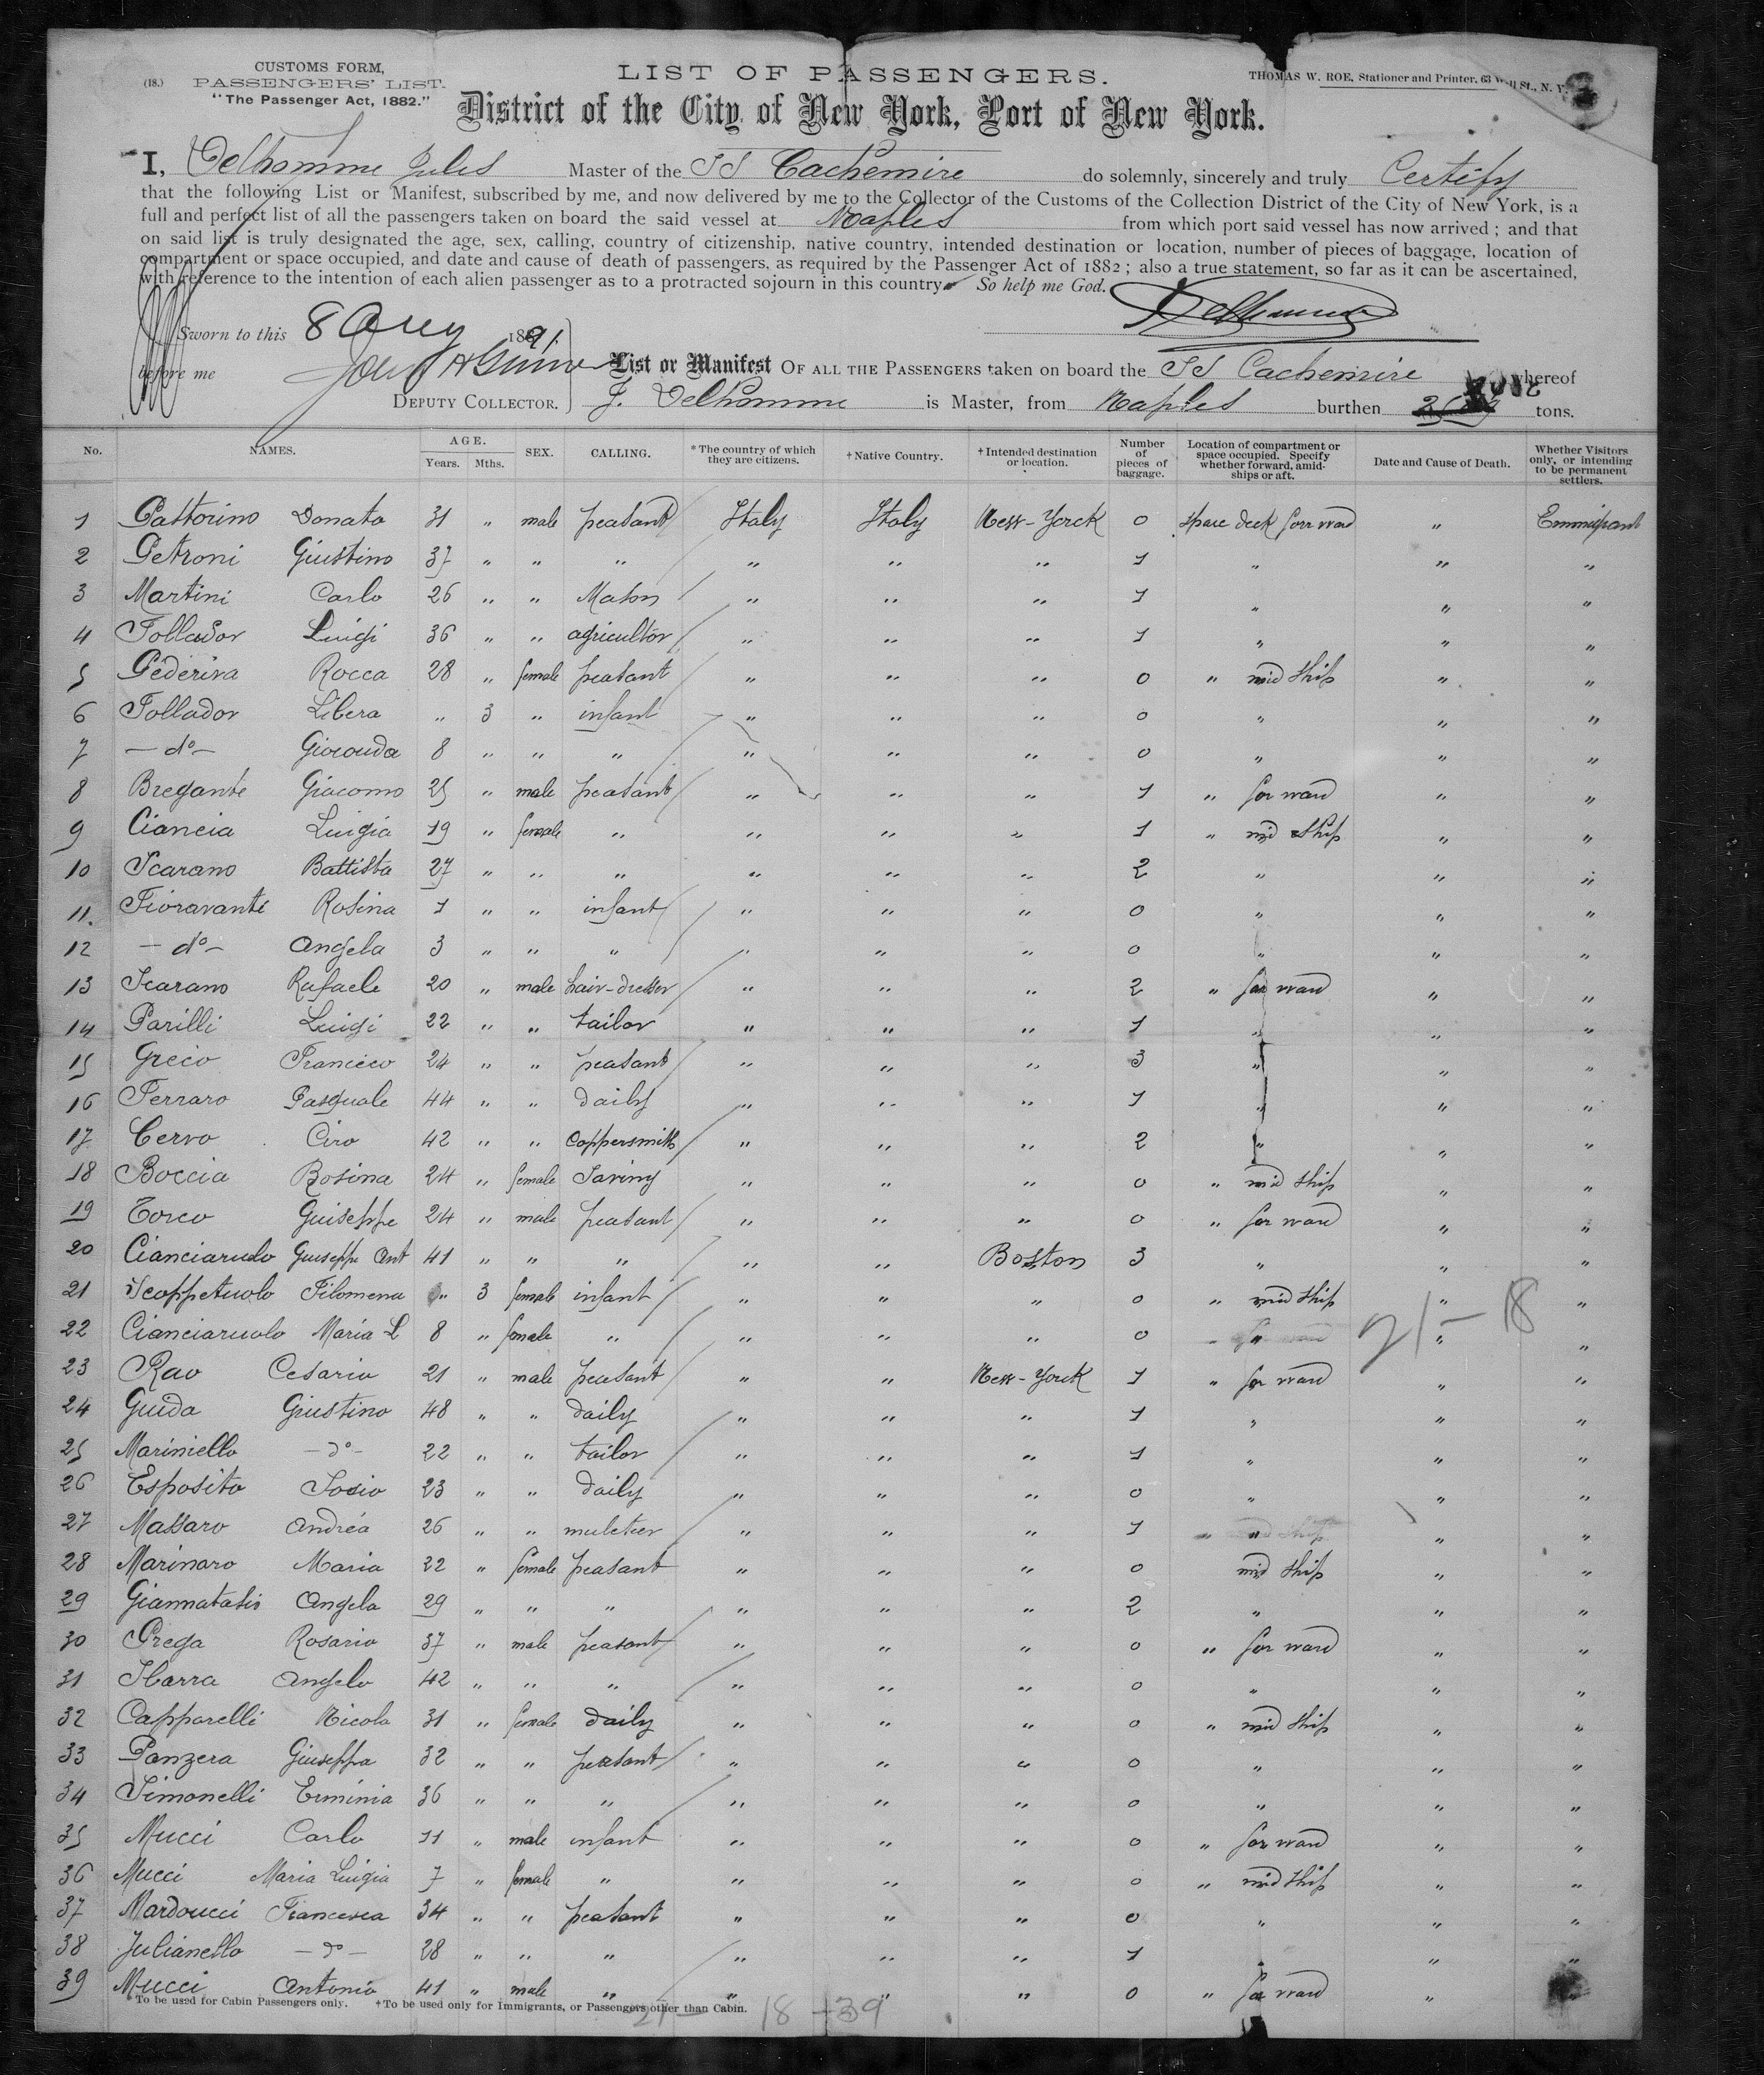 (18.) CUSTOMS FORM,
PASSENGERS' LIST.
"The Passenger Act, 1882."
LIST OF PASSENGERS.
THOMAS W. ROE, Stationer and Printer, 63 Wall St., N. Y.
District of the City of New York, Port of New York.
I, Delhomme Jules Master of the SS Cachemire do solemnly, sincerely and truly Certify
that the following List or Manifest, subscribed by me, and now delivered by me to the Collector of the Customs of the Collection District of the City of New York, is a
full and perfect list of all the passengers taken on board the said vessel at Naples from which port said vessel has now arrived; and that
on said list is truly designated the age, sex, calling, country of citizenship, native country, intended destination or location, number of pieces of baggage, location of
compartment or space occupied, and date and cause of death of passengers, as required by the Passenger Act of 1882; also a true statement, so far as it can be ascertained,
with reference to the intention of each alien passenger as to a protracted sojourn in this country. So help me God.
Sworn to this 8 Aug 1891
before me
DEPUTY COLLECTOR.
List or Manifest OF ALL THE PASSENGERS taken on board the SS Cachemire whereof
J. Delhomme is Master, from Naples burthen tons.
No. NAMES. AGE. Years. Mths. SEX. CALLING. *The country of which they are citizens. †Native Country. †Intended destination or location. Number of pieces of baggage. Location of compartment or space occupied. Specify whether forward, amidships or aft. Date and Cause of Death. Whether Visitors only, or intending to be permanent settlers.
1 Pattorino Donato 31 " male peasant Italy Italy New-Yorck 0 spare deck forr ward " Emmigrant
2 Petroni Giustino 37 " " " " " " 1 " " "
3 Martini Carlo 26 " " Maton " " " 1 " " "
4 Tollador Luigi 36 " " agricultor " " " 1 " " "
5 Pederiva Rocca 28 " female peasant " " " 0 " mid ship " "
6 Tollador Libera " 3 " infant " " " 0 " " "
7 — do — Gioconda 8 " " " " " " 0 " " "
8 Bregante Giacomo 25 " male peasant " " " 1 " for ward " "
9 Ciancia Luigia 19 " female " " " " 1 " mid ship " "
10 Scarano Battista 27 " " " " " " 2 " " "
11. Fioravante Rosina 1 " " infant " " " 0 " " "
12 — do — Angela 3 " " " " " " 0 " " "
13 Scarano Rafaele 20 " male hair-dresser " " " 2 " for ward " "
14 Parilli Luigi 22 " " tailor " " " 1 " " "
15 Greco Francesco 24 " " peasant " " " 3 " " "
16 Ferraro Pasquale 44 " " daily " " " 1 " " "
17 Cervo Ciro 42 " " coppersmith " " " 2 " " "
18 Boccia Rosina 24 " female Saving " " " 0 " mid ship " "
19 Torco Guiseppe 24 " male peasant " " " 0 " for ward " "
20 Cianciarulo Giuseppe Ant 41 " " " " " Boston 3 " " "
21 Scoppetuolo Filomena " 3 female infant " " " 0 " mid ship " "
22 Cianciaruolo Maria L 8 " female " " " " 0 " " "
21 — 18
23 Rao Cesario 21 " male peasant " " New-Yorck 1 " for ward " "
24 Guida Giustino 48 " " daily " " " 1 " " "
25 Mariniello — do — 22 " " tailor " " " 1 " " "
26 Esposito Sosio 23 " " daily " " " 0 " " "
27 Massaro Andréa 26 " " muleteer " " " 1 " " " "
28 Marinaro Maria 22 " female peasant " " " 0 mid ship " "
29 Giannatasio Angela 29 " " " " " " 2 " " "
30 Prega Rosario 37 " male peasant " " " 0 " for ward " "
31 Sbarra Angelo 42 " " " " " " 0 " " "
32 Capparelli Nicola 31 " female daily " " " 0 " mid ship " "
33 Panzera Giuseppa 32 " " peasant " " " 0 " " "
34 Simonelli Erminia 36 " " " " " " 0 " " "
35 Mucci Carlo 11 " male infant " " " 0 " for ward " "
36 Mucci Maria Luigia 7 " female " " " " 0 " mid ship " "
37 Mardoucci Francesca 34 " " peasant " " " 0 " " "
38 Julianello — do — 28 " " " " " " 1 " " "
39 Mucci Antonio 41 " male " " " " 0 " for ward "
*To be used for Cabin Passengers only. †To be used only for Immigrants, or Passengers other than Cabin.
21 — 18 — 39